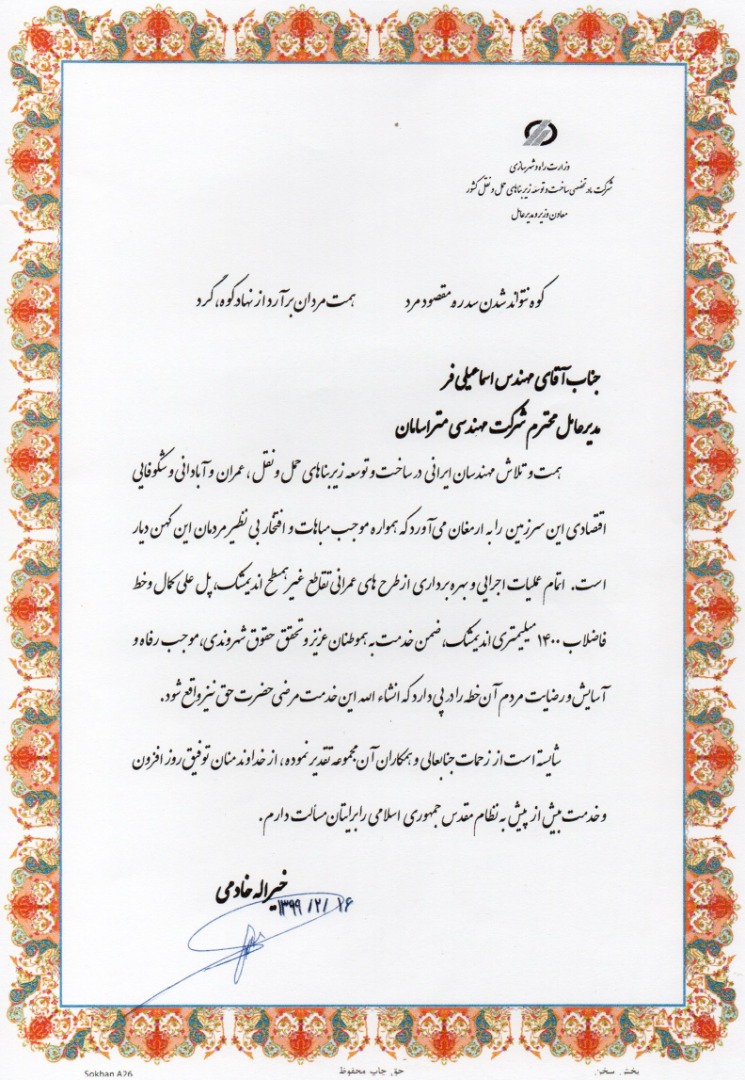 وزارت راه و شهرسازی
شرکت مادر تخصصی ساخت و توسعه زیربناهای حمل و نقل کشور
معاون وزیر و مدیرعامل
کوه نتواند شدن سد ره مقصود مرد همت مردان برآرد از نهاد کوه، گرد
جناب آقای مهندس اسماعیلی فر
مدیرعامل محترم شرکت مهندسی مترا سامان
همت و تلاش مهندسان ایرانی در ساخت و توسعه زیربناهای حمل و نقل، عمران و آبادانی و شکوفایی
اقتصادی این سرزمین را به ارمغان می‌آورد که همواره موجب مباهات و افتخار بی نظیر مردمان این کهن دیار
است. اتمام عملیات اجرایی و بهره برداری از طرح های عمرانی تقاطع غیرهمسطح اندیمشک، پل علی کمال و خط
فاضلاب ۱۴۰۰ میلیمتری اندیمشک، ضمن خدمت به هموطنان عزیز و تحقق حقوق شهروندی، موجب رفاه و
آسایش و رضایت مردم آن خطه را در پی دارد که انشاء الله این خدمت مرضی حضرت حق نیز واقع شود.
شایسته است از زحمات جنابعالی و همکاران آن مجموعه تقدیر نموده، از خداوند منان توفیق روز افزون
و خدمت بیش از پیش به نظام مقدس جمهوری اسلامی را برایتان مسألت دارم.
خیراله خادمی
۱۳۹۹/۲/۱۶
Sokhan A26 حق چاپ محفوظ پخش سخن